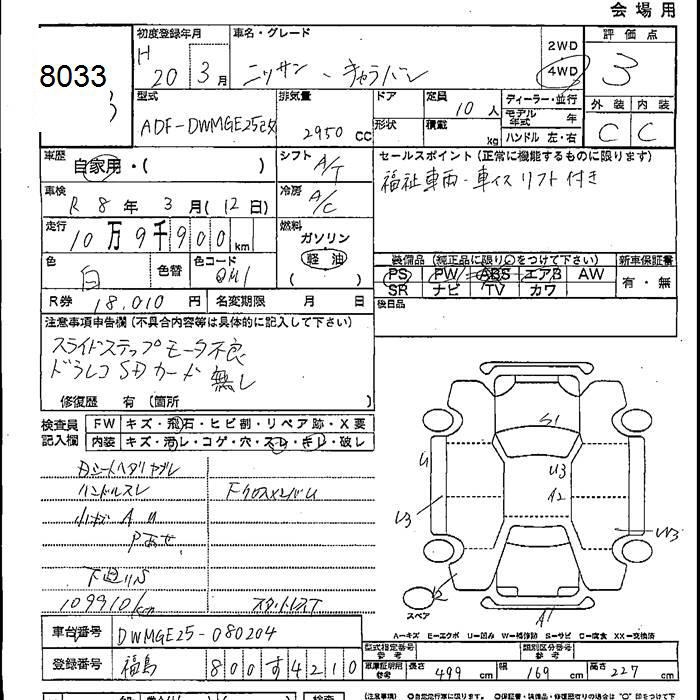 会場用
8033
3
初度登録年月
H 20年 3月
車名・グレード
ニッサン、キャラバン
2WD
4WD
評価点
3
外装 内装
C C
型式
ADF-DWMGE25改
排気量
2950 CC
ドア
形状
定員 10 人
積載 kg
ディーラー・並行
モデル年式 年
ハンドル 左・右
車歴
自家用・( )
シフト A/T
セールスポイント (正常に機能するものに限ります)
福祉車両・車イスリフト付き
車検
R 8 年 3 月 ( 12 日)
冷房 A/C
走行
10万9千900km
燃料
ガソリン
軽油
( )
色
白
色替
色コード
QM1
装備品 (純正品に限り○をつけて下さい)
新車保証書
PS PW ABS エアB AW
SR ナビ TV カワ
有・無
後日品
R券 18,010 円 名変期限 月 日
注意事項申告欄 (不具合内容等は具体的に記入して下さい)
スライドステップモータ不良
ドラレコ SDカード無し
修復歴 有 (箇所 )
検査員記入欄
FW キズ・飛石・ヒビ割・リペア跡・X要
内装 キズ・汚レ・コゲ・穴・スレ・キレ・破レ
ハンドルスレ
下廻りS
109910km
スタットレスT
S1
U
U3
A2
U3
W3
A2
A1
スペア
A=キズ E=エクボ U=凹み W=補修跡 S=サビ C=腐食 XX=交換済
車台番号 DWMGE25-080204
登録番号 福島 800す4210
型式指定番号 参考
類別区分番号 参考
車庫証明用参考 長さ 499 cm 幅 169 cm 高さ 227 cm